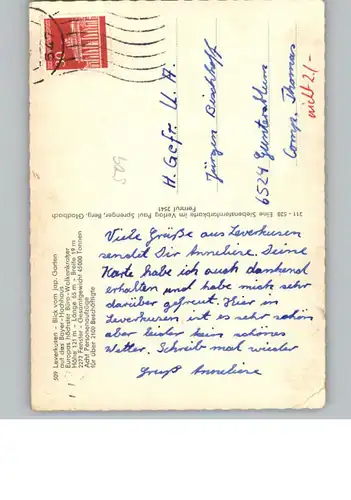 509 Leverkusen - Blick vom Jap. Garten
auf das Bayer-Hochhaus
Europas höchster Büro-Wolkenkratzer
Höhe 121 m - Länge 65 m - Breite 19 m
2273 Fenster - Gesamtgewicht 45000 Tonnen
Acht Personenaufzüge
für über 2100 Beschäftigte
Viele Grüße aus Leverkusen
sendet Dir Anneliese. Deine
Karte habe ich auch dankend
erhalten und habe mich sehr
darüber gefreut. Hier in
Leverkusen ist es sehr schön
aber leider kein schönes
Wetter. Schreib mal wieder
Gruß Anneliese
211 - 528 - Eine Siebensternfarbkarte im Verlag Paul Sprenger, Berg. Gladbach
Fernruf 2541
H. Gefr. U. A.
Jürgen Bischhoff
6524 Guntersblum
Comp. Thomas
nicht 21.-
509